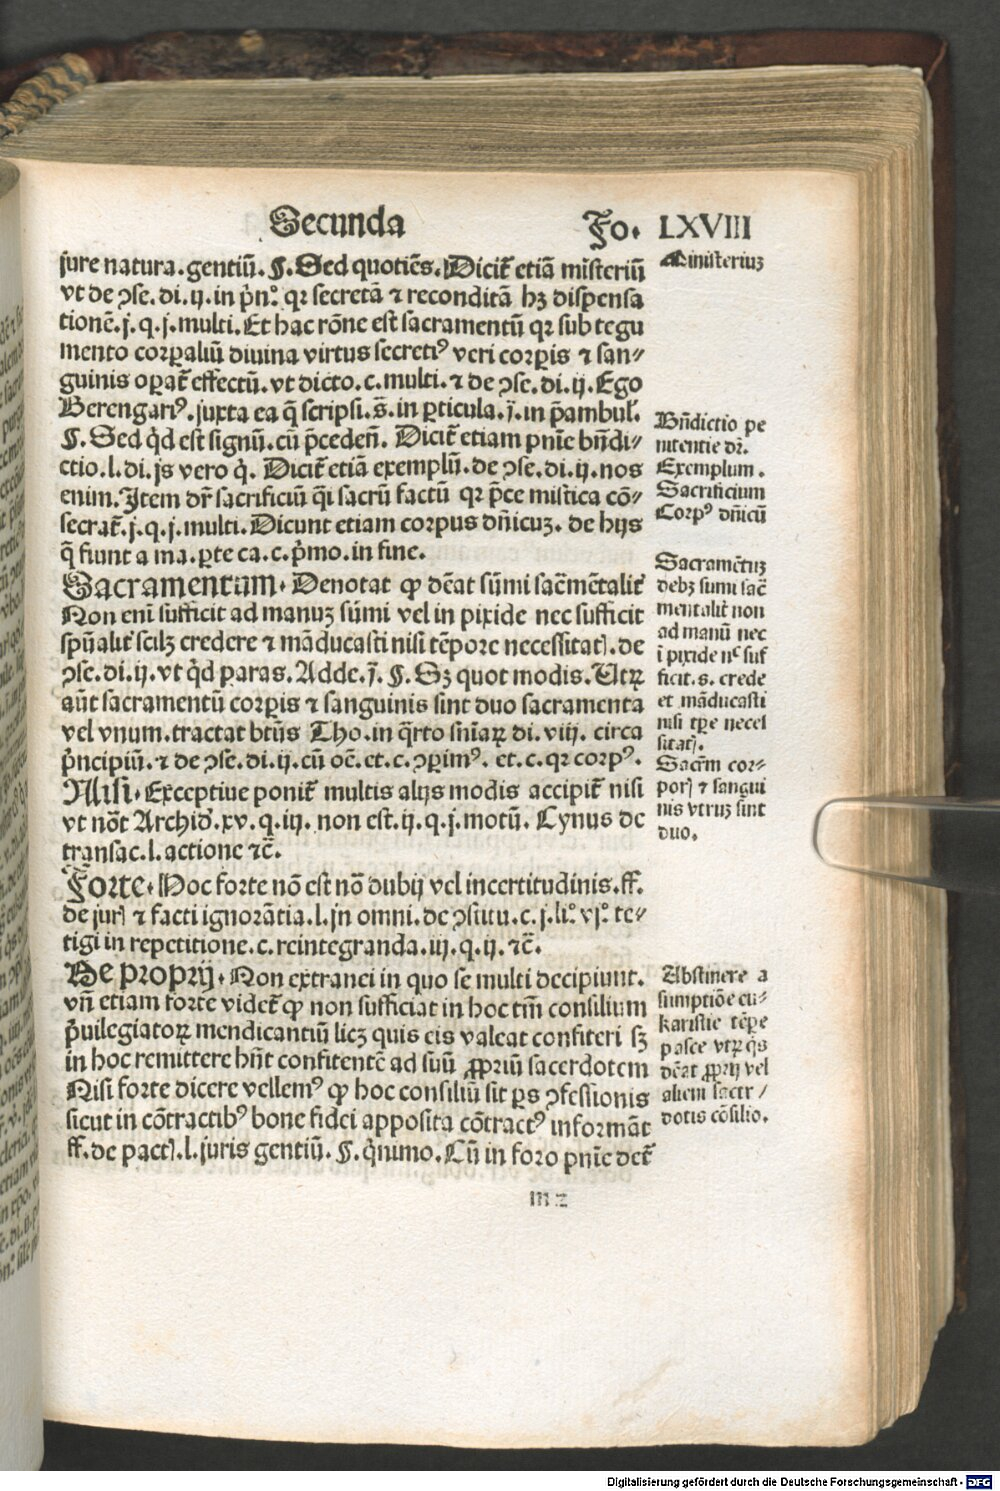 Secunda Fo. LXVIII
jure natura.gentiũ.§.Sed quotiẽs.Dicit᷑ etiã misteriũ
vt de ↄse.di.ij.in p̃nº. qꝛ secretã ⁊ reconditã hꝫ dispensa
tionẽ.j.q.j.multi.Et hac rõne est sacramentũ qꝛ sub tegu
mento corꝑaliũ diuina virtus secretiꝰ veri corꝑis ⁊ san⸗
guinis oꝑat᷑ effectũ.vt dicto.c.multi.⁊ de ↄse.di.ij.Ego
Berengariꝰ.juxta ea q̃ scripsi.s̃.in ꝑticula.j̃.in p̃ambul᷑.
§.Sed q̇d est signũ.cũ p̃cedeñ. Dicit᷑ etiam pñie bñdi⸗
ctio.l.di.js vero q̇. Dicit᷑ etiã exemplũ.de ↄse.di.ij.nos
enim.Item dr̃ sacrificiũ q̇i sacrũ factũ qꝛ p̃ce mistica cõ⸗
secrat᷑.j.q.j.multi.Dicunt etiam corpus dñicuꝫ. de hijs
q̃ fiunt a ma.ꝑte ca.c.p̃mo.in fine.
Sacramentum. Denotat ꝙ dẽat sũmi sac̃mẽtalit᷑
Non eni sufficit ad manuꝫ sũmi vel in pixide nec sufficit
spũalit᷑ scilꝫ credere ⁊ mãducasti nisi tẽpore necessitatꝭ.de
ↄse.di.ij.vt q̇d paras.Adde.j̃.§.Sꝫ quot modis.Utꝝ
aũt sacramentũ corꝑis ⁊ sanguinis sint duo sacramenta
vel vnum.tractat btũs Tho.in q̃rto sñiaꝝ di.viij. circa
p̃ncipiũ.⁊ de ↄse.di.ij.cũ oẽ.et.c.ↄꝑimꝰ. et.c.qꝛ corpꝰ.
Nisi. Exceptiue ponit᷑ multis alijs modis accipit᷑ nisi
vt nõt Archid̃.xv.q.iij. non est.ij.q.j.motũ. Cynus de
transac.l.actione ⁊c̃.
Forte. Hoc forte nõ est nõ dubij vel incertitudinis.ff.
de jurꝭ ⁊ facti ignorãtia.l.jn omni.de ↄstitu.c.j.liº. vjº. te⸗
tigi in repetitione.c.reintegranda.iij.q.ij.⁊c̃.
De proprij. Non extranei in quo se multi decipiunt.
vñ etiam forte videt᷑ ꝙ non sufficiat in hoc tm̃ consilium
p̃uilegiatoꝝ mendicantiũ licꝫ quis eis valeat confiteri sꝫ
in hoc remittere hñt confitentẽ ad suũ ꝓpriũ sacerdotem
Nisi forte dicere vellemꝰ ꝙ hoc consiliũ sit ꝑs ↄfessionis
sicut in cõtractibꝰ bone fidei apposita cõtractꝰ informãt
ff.de pactꝭ.l.juris gentiũ.§.q̇nimo.Cũ in foro pñie dect᷑
m 2
Ministeriuꝫ
Bñdictio pe
nitentie dr̃.
Exemplum.
Sacrificium
Corpꝰ dñicũ
Sacramẽtuꝫ
debꝫ sumi sac̃
mentalit᷑ non
ad manũ nec
ĩ pixide nᶜ suf
ficit.s. crede
et mãducasti
nisi tp̃e necel
sitatꝭ.
Sac̃m cor⸗
porꝭ ⁊ sangui
nis vtruꝫ sint
duo.
Abstinere a
sumptiõe eu⸗
karistie tẽpe
pasce vtꝝ q̇s
dẽat ꝓprij vel
alieni sacer⸗
dotis cõsilio.
Digitalisierung gefördert durch die Deutsche Forschungsgemeinschaft - DFG